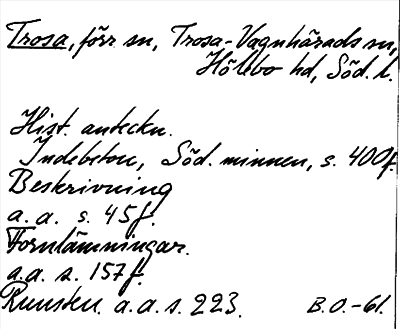 Trosa, förr sn, Trosa-Vagnhärads sn,
Hölebo hd, Söd. l.
Hist. anteckn.
Indebetou, Söd. minnen, s. 400f.
Beskrivning
a.a. s. 45f.
Fornlämningar.
a.a. s. 157f.
Runsten. a.a.s. 223.
B.O.-61.